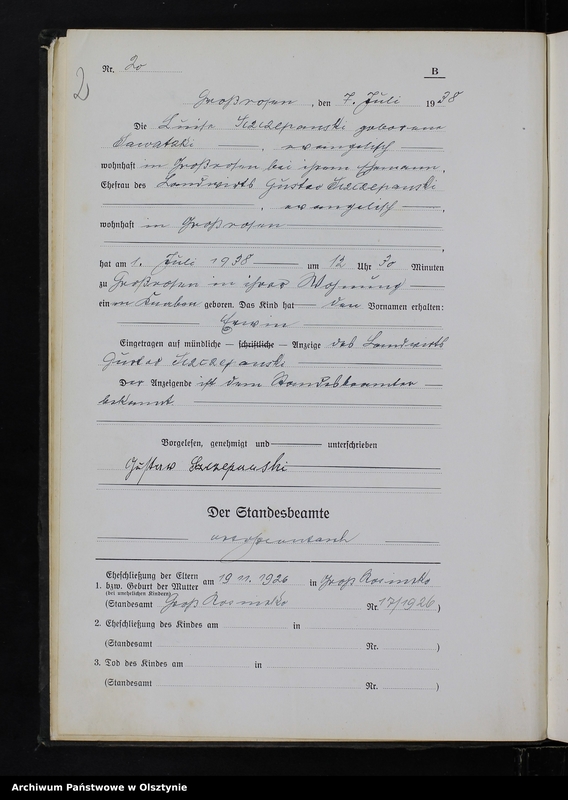 2
Nr. 20
B
Großrosen, den 7. Juli 1938
Die Luise Szczepanski geborene
Sawatzki, evangelisch
wohnhaft in Großrosen bei ihrem Ehemann,
Ehefrau des Landwirts Gustav Szczepanski
, evangelisch,
wohnhaft in Großrosen
,
hat am 1. Juli 1938 um 12 Uhr 30 Minuten
zu Großrosen in ihrer Wohnung
einen Knaben geboren. Das Kind hat den Vornamen erhalten:
Erwin
Eingetragen auf mündliche — schriftliche — Anzeige des Landwirts
Gustav Szczepanski
Der Anzeigende ist dem Standesbeamten
bekannt
Vorgelesen, genehmigt und unterschrieben
Gustav Szczepanski
Der Standesbeamte
Eheschließung der Eltern
1. bzw. Geburt der Mutter am 19.11.1926 in Groß Rosinsko
(bei unehelichen Kindern)
(Standesamt Groß Rosinsko Nr. 17/1926)
2. Eheschließung des Kindes am in
(Standesamt Nr. )
3. Tod des Kindes am in
(Standesamt Nr. )
Archiwum Państwowe w Olsztynie